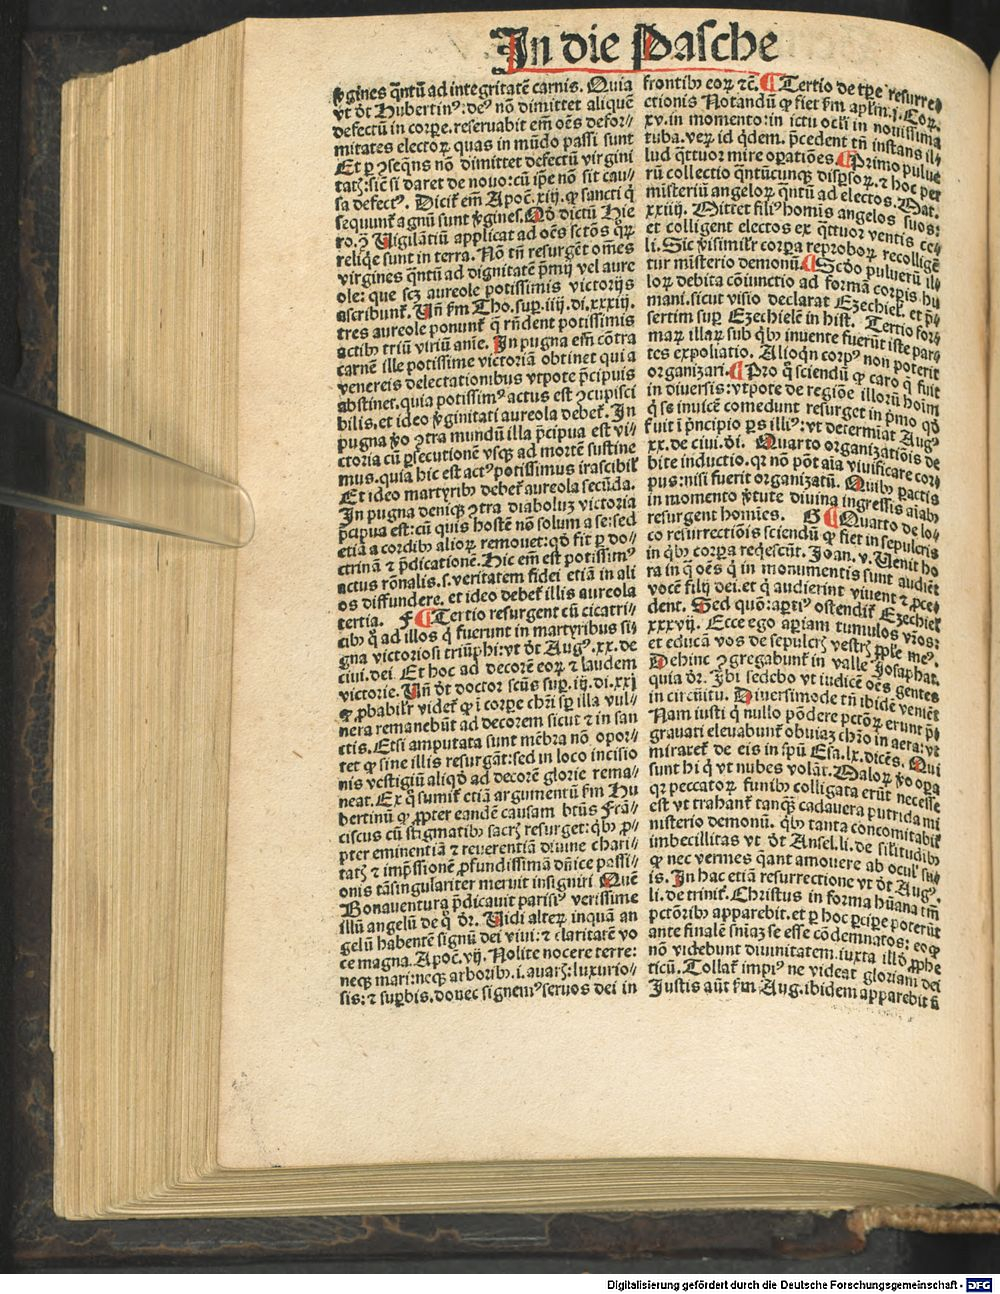 In die Pasche
v̄gines q̄ntū ad integritatē carnis. Quia
vt dt Hubertinꝰ: deꝰ nō dimittet aliquē
defectū in corpe. reseruabit em̄ oēs defor⸗
mitates electoꝝ quas in mūdo passi sunt
Et ꝑ ꝯseqn̄s nō dimittet defectū virgini
tatꝭ: sic̄ si daret de nouo: cū ip̄e nō sit cau⸗
sa defectꝰ. Dicit̄ em̄ Apoc̄. xiiij. ꝙ sancti q̇
sequunt̄ agnū sunt v̄gines. Qd̓ dictū Hie
ro. ꝯ Uigilātiū applicat ad oēs sctōs qꝝ
reliq̄e sunt in terra. Nō tn̄ resurgēt om̄es
virgines q̄ntū ad dignitatē p̄mij vel aure
ole: que scꝫ aureole potissimis victorijs
ascribunt̄. Un̄ fm Tho. sup. iiij. di. xxxiij.
tres aureole ponunt̄ q̇ rn̄dent potissimis
actibꝫ triū viriū anīe. In pugna em̄ cōtra
carnē ille potissime victoriā obtinet qui a
venereis delectationibus vtpote p̄cipuis
abstinet. quia potissimꝰ actus est ꝯcupisci
bilis. et ideo v̄ginitati aureola debet̄. In
pugna v̓o ꝯtra mundū illa p̄cipua est vi⸗
ctoria cū ꝑsecutionē vsqꝫ ad mortē sustine
mus. quia hic est actꝰ potissimus irascibil̓
Et ideo martyribꝫ debet̄ aureola secūda.
In pugna deniqꝫ ꝯtra diaboluꝫ victoria
p̄cipua est: cū quis hostē nō solum a se: sed
etiā a cordibꝫ alioꝝ remouet: qd̓ fit ꝑ do⸗
ctrinā ⁊ p̄dicationē. Hic em̄ est potissimꝰ
actus rōnalis. s. veritatem fidei etiā in ali
os diffundere. et ideo debet̄ illis aureola
tertia. F ¶ Tertio resurgent cū cicatri⸗
cibꝫ q̄ ad illos q̇ fuerunt in martyribus si⸗
gna victoriosi triūphi: vt dt Augꝰ. xx. de
ciui. dei Et hoc ad decorē eoꝝ ⁊ laudem
victorie. Un̄ dt doctor scūs sup. iij. di. xxj
ꝙ ꝓbabilr̓ videt̄ ꝙ ī corpe chr̄i sꝑ illa vul⸗
nera remanebūt ad decorem sicut ⁊ in san
ctis. Etsi amputata sunt mēbra nō opor⸗
tet ꝙ sine illis resurgāt: sed in loco incisio
nis vestigiū aliqd̓ ad decorē glorie rema⸗
neat. Ex q̇ sumit̄ etiā argumentū fm Hu
bertinū ꝙ ꝓpter eandē causam btūs Frā⸗
ciscus cū stigmatibꝫ sacrꝭ resurget: qͥbꝫ ꝓ⸗
pter eminentiā ⁊ reuerentiā diuine chari⸗
tatꝭ ⁊ imp̄ssionē ꝓfundissimā dn̄ice passi⸗
onis tā singulariter meruit insigniri Quē
Bonauentura p̄dicauit parisiꝰ verissime
illū angelū de q̇ dr̄. Uidi alteꝝ inquā an
gelū habentē signū dei viui: ⁊ claritatē vo
ce magna. Apoc̄. vij. Nolite nocere terre:
neqꝫ mari: neqꝫ arboribꝫ. i. auarꝭ: luxurio⸗
sis: ⁊ suꝑbis. donec signemꝰ seruos dei in
frontibꝫ eoꝝ ⁊c̄. ¶ Tertio de tp̄e resurre⸗
ctionis Notandū ꝙ fiet fm ap̄lm. j. Coꝝ.
xv. in momento: in ictu ocl̓i in nouissima
tuba. veꝝ id qͥdem. p̄cedent tn̄ instans il⸗
lud q̄ttuor mire oꝑatiōes. ¶ Primo pulue
rū collectio q̄ntūcunqꝫ disꝑsoꝝ. ⁊ hoc per
misteriū angeloꝝ q̄ntū ad electos. Mat.
xxiiij. Mittet filiꝰ hom̄is angelos suos:
et colligent electos ex q̄ttuor ventis ce⸗
li. Sic v̓isimilr̓ corꝑa reproboꝝ recolligē
tur mīsterio demonū. ¶ Scd̓o puluerū il⸗
loꝝ debita cōiunctio ad formā corꝑis hu
mani. sicut visio declarat Ezechiel̓. et p̄⸗
sertim sup Ezechielē in hist. Tertio for⸗
maꝝ illaꝝ sub qͥbꝫ inuente fuerūt iste par⸗
tes expoliatio. Alioqͥn corpꝰ non poterit
organizari. ¶ Pro q̇ sciendū ꝙ caro q̄ fuit
in diuersis: vtpote de regiōe illoꝝ hoīm
q̇ se inuicē comedunt resurget in p̄mo qd̓
fuit ī p̄ncipio ꝑs illiꝰ: vt determīat Augꝰ
xx. de ciui. di. Quarto organizatiōis de
bite inductio. qꝛ nō pōt aīa viuificare cor⸗
pus: nisi fuerit organizatū. Quibꝫ ꝑactis
in momento v̓tute diuina ingressis aīabꝫ
resurgent homīes. G ¶ Quarto de lo⸗
co resurrectiōis sciendū ꝙ fiet in sepulcris
in qͥbꝫ corꝑa reqͥescūt. Joan. v. Uenit ho
ra in q̄ oēs q̇ in monumentis sunt audiēt
vocē filij dei. et q̇ audierint viuent ⁊ ꝓce⸗
dent. Sed quō: aꝑtiꝰ ostendit̄ Ezechiel̓
xxxvij. Ecce ego aꝑiam tumulos vr̄os:
et educā vos de sepulcrꝭ vestrꝭ pple meꝰ.
Dehinc ꝯgregabunt̄ in valle Josaphat.
quia dr̄. Ibi sedebo vt iudicē oēs gentes
in circūitu. Diuersimode tn̄ ibidē veniēt
Nam iusti q̇ nullo pōdere pctōꝝ erunt p̄⸗
grauati eleuabunt̄ obuiaꝫ chr̄o in aera: vt
miraret̄ de eis in spū Esa. lx. dicēs. Qui
sunt hi q̇ vt nubes volāt. Maloꝝ v̓o oꝑa
qꝛ peccatoꝝ funibꝫ colligata erūt necesse
est vt trahant̄ tanqꝫ cadauera putrida mi
nisterio demonū. qͥbꝫ tanta concomitabit̄
imbecillitas vt dt Ansel. li. de sil̓itudibꝫ
ꝙ nec vermes q̄ant amouere ab ocul̓ su⸗
is. In hac etiā resurrectione vt dt Augꝰ.
li. de trinit̄. Christus in forma hūana tm̄
pctōribꝫ apparebit. et ꝑ hoc ꝑcipe poterūt
ante finalē sn̄iaꝫ se esse cōdemnatos: eo ꝙ
nō videbunt diuinitatem. iuxta illd̓ ꝓphe
ticū. Tollat̄ impiꝰ ne videat gloriam dei
Justis aūt fm Aug. ibidem apparebit ẜ
Digitalisierung gefördert durch die Deutsche Forschungsgemeinschaft - DFG